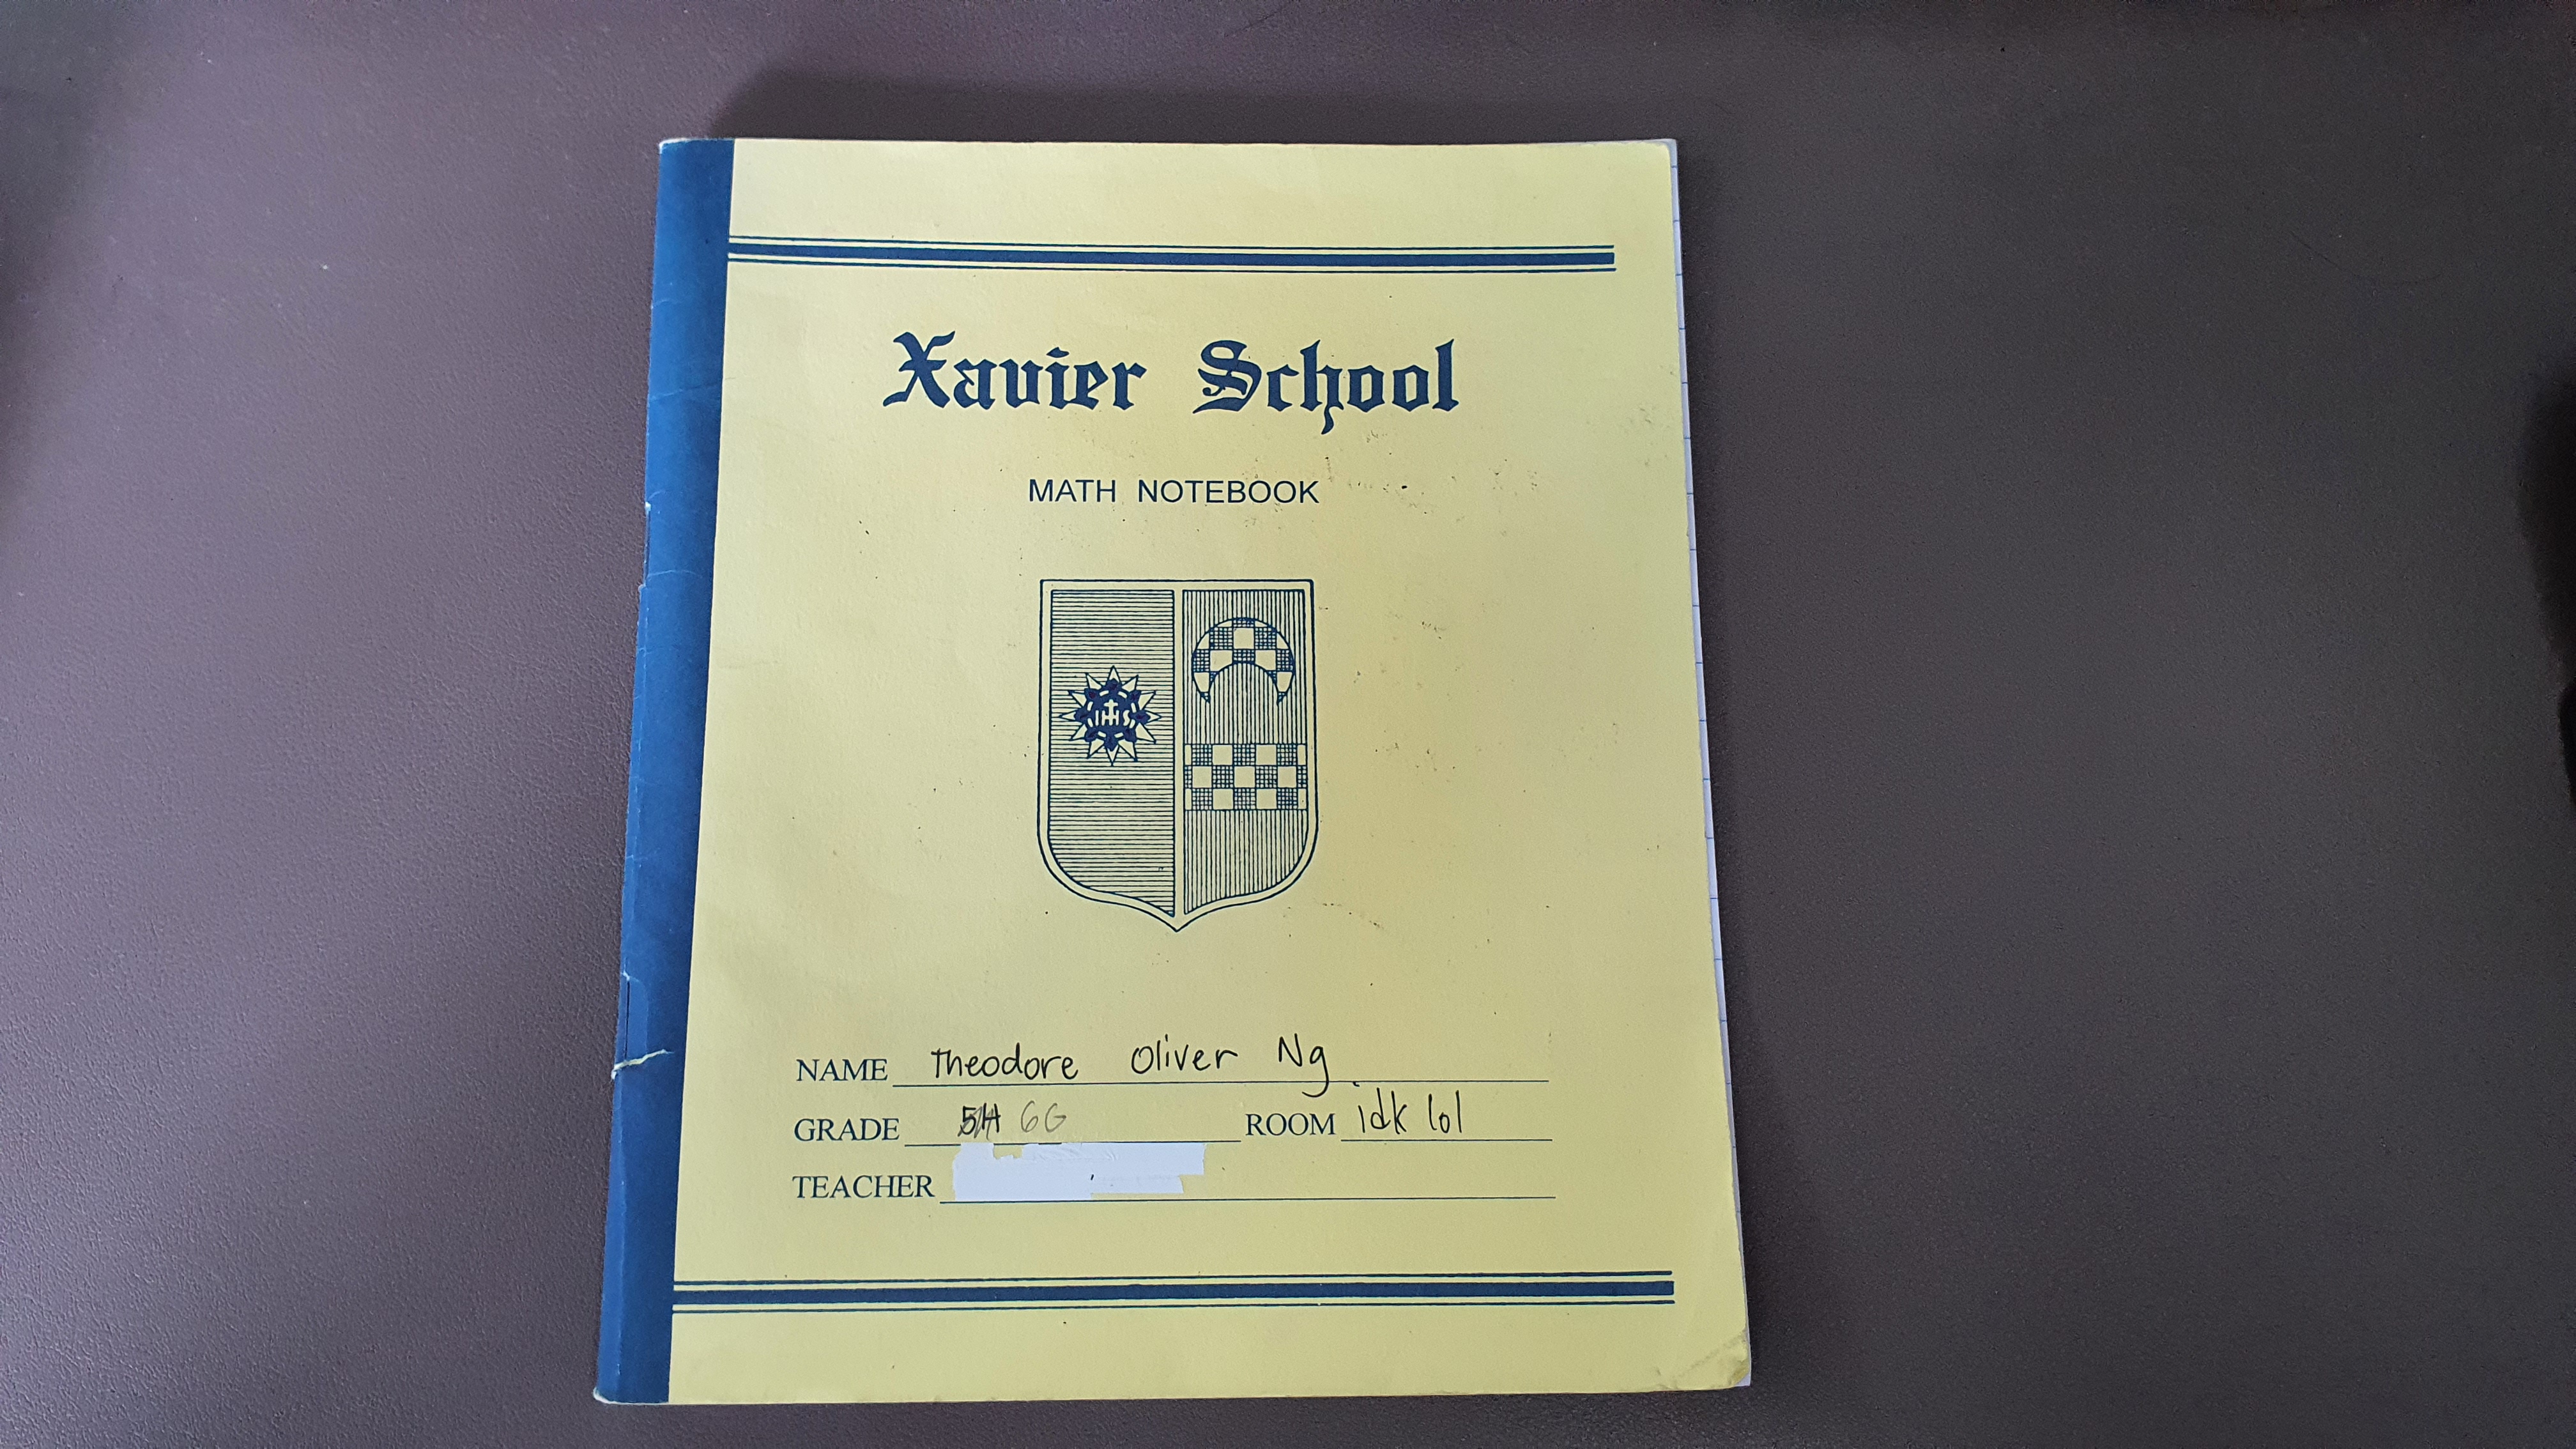 Xavier School
MATH NOTEBOOK
IHS
NAME Theodore Oliver Ng
GRADE 5H 6G ROOM idk lol
TEACHER